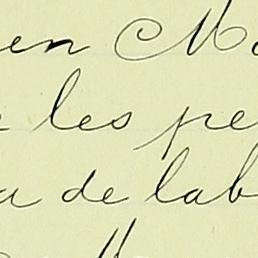 en M
les pe
a de lab